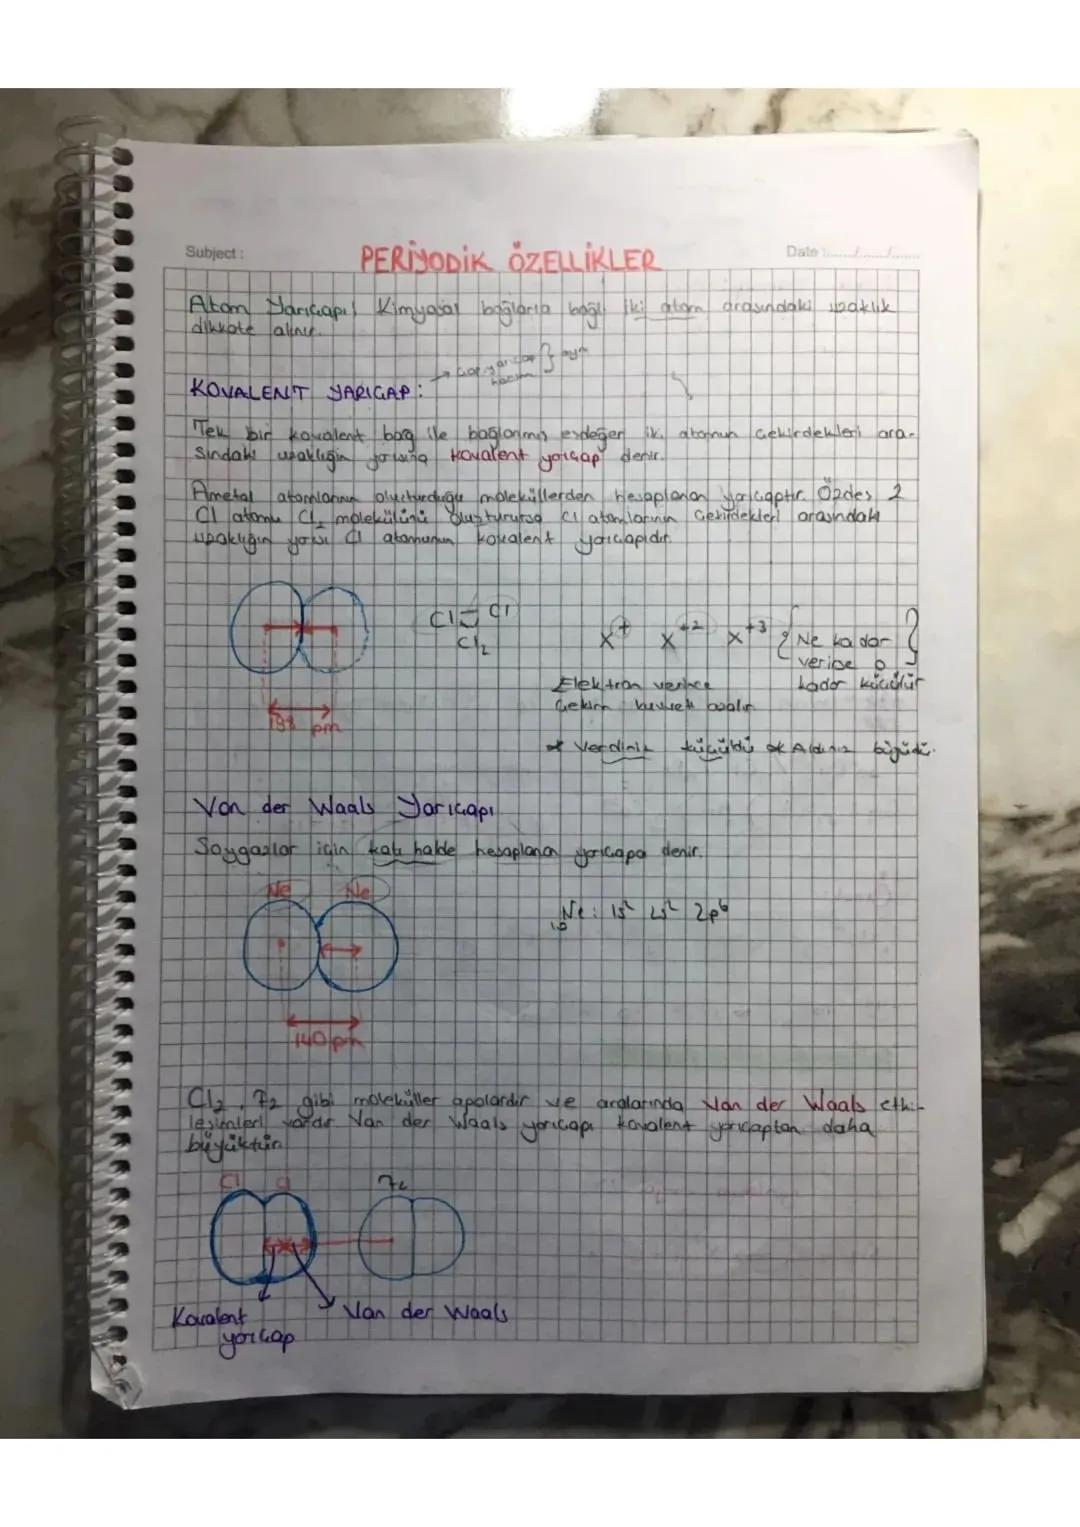 Subject :
PERİYODİK ÖZELLİKLER
Date :....../....../......
Atom Yarıçapı: Kimyasal bağlarla bağlı iki atom arasındaki uzaklık
dikkate alınır.
KOVALENT YARIÇAP:
→ çap, yarıçap } aynı
hacim
Tek bir kovalent bağ ile bağlanmış eşdeğer iki atomun çekirdekleri ara-
sındaki uzaklığın yarısına kovalent yarıçap denir.
Ametal atomlarının oluşturduğu moleküllerden hesaplanan yarıçaptır. Özdeş 2
Cl atomu Cl₂ molekülünü oluşturursa Cl atomlarının çekirdekleri arasındaki
uzaklığın yarısı Cl atomunun kovalent yarıçapıdır.
Cl - Cl
Cl₂
198 pm
X⁺ X⁺² X⁺³ { Ne kadar }
verirse o
kadar küçülür
Elektron verince
çekim kuvveti azalır
* Verdinik küçüldü * Aldınız büyüdü.
Van der Waals Yarıçapı
Soygazlar için katı halde hesaplanan yarıçapa denir.
Ne Ne
₁₀Ne : 1s² 2s² 2p⁶
140 pm
Cl₂, F₂ gibi moleküller apolardır ve aralarında Van der Waals etki-
leşimleri vardır. Van der Waals yarıçapı kovalent yarıçaptan daha
büyüktür.
Cl Cl
Kovalent
yarıçap
Van der Waals